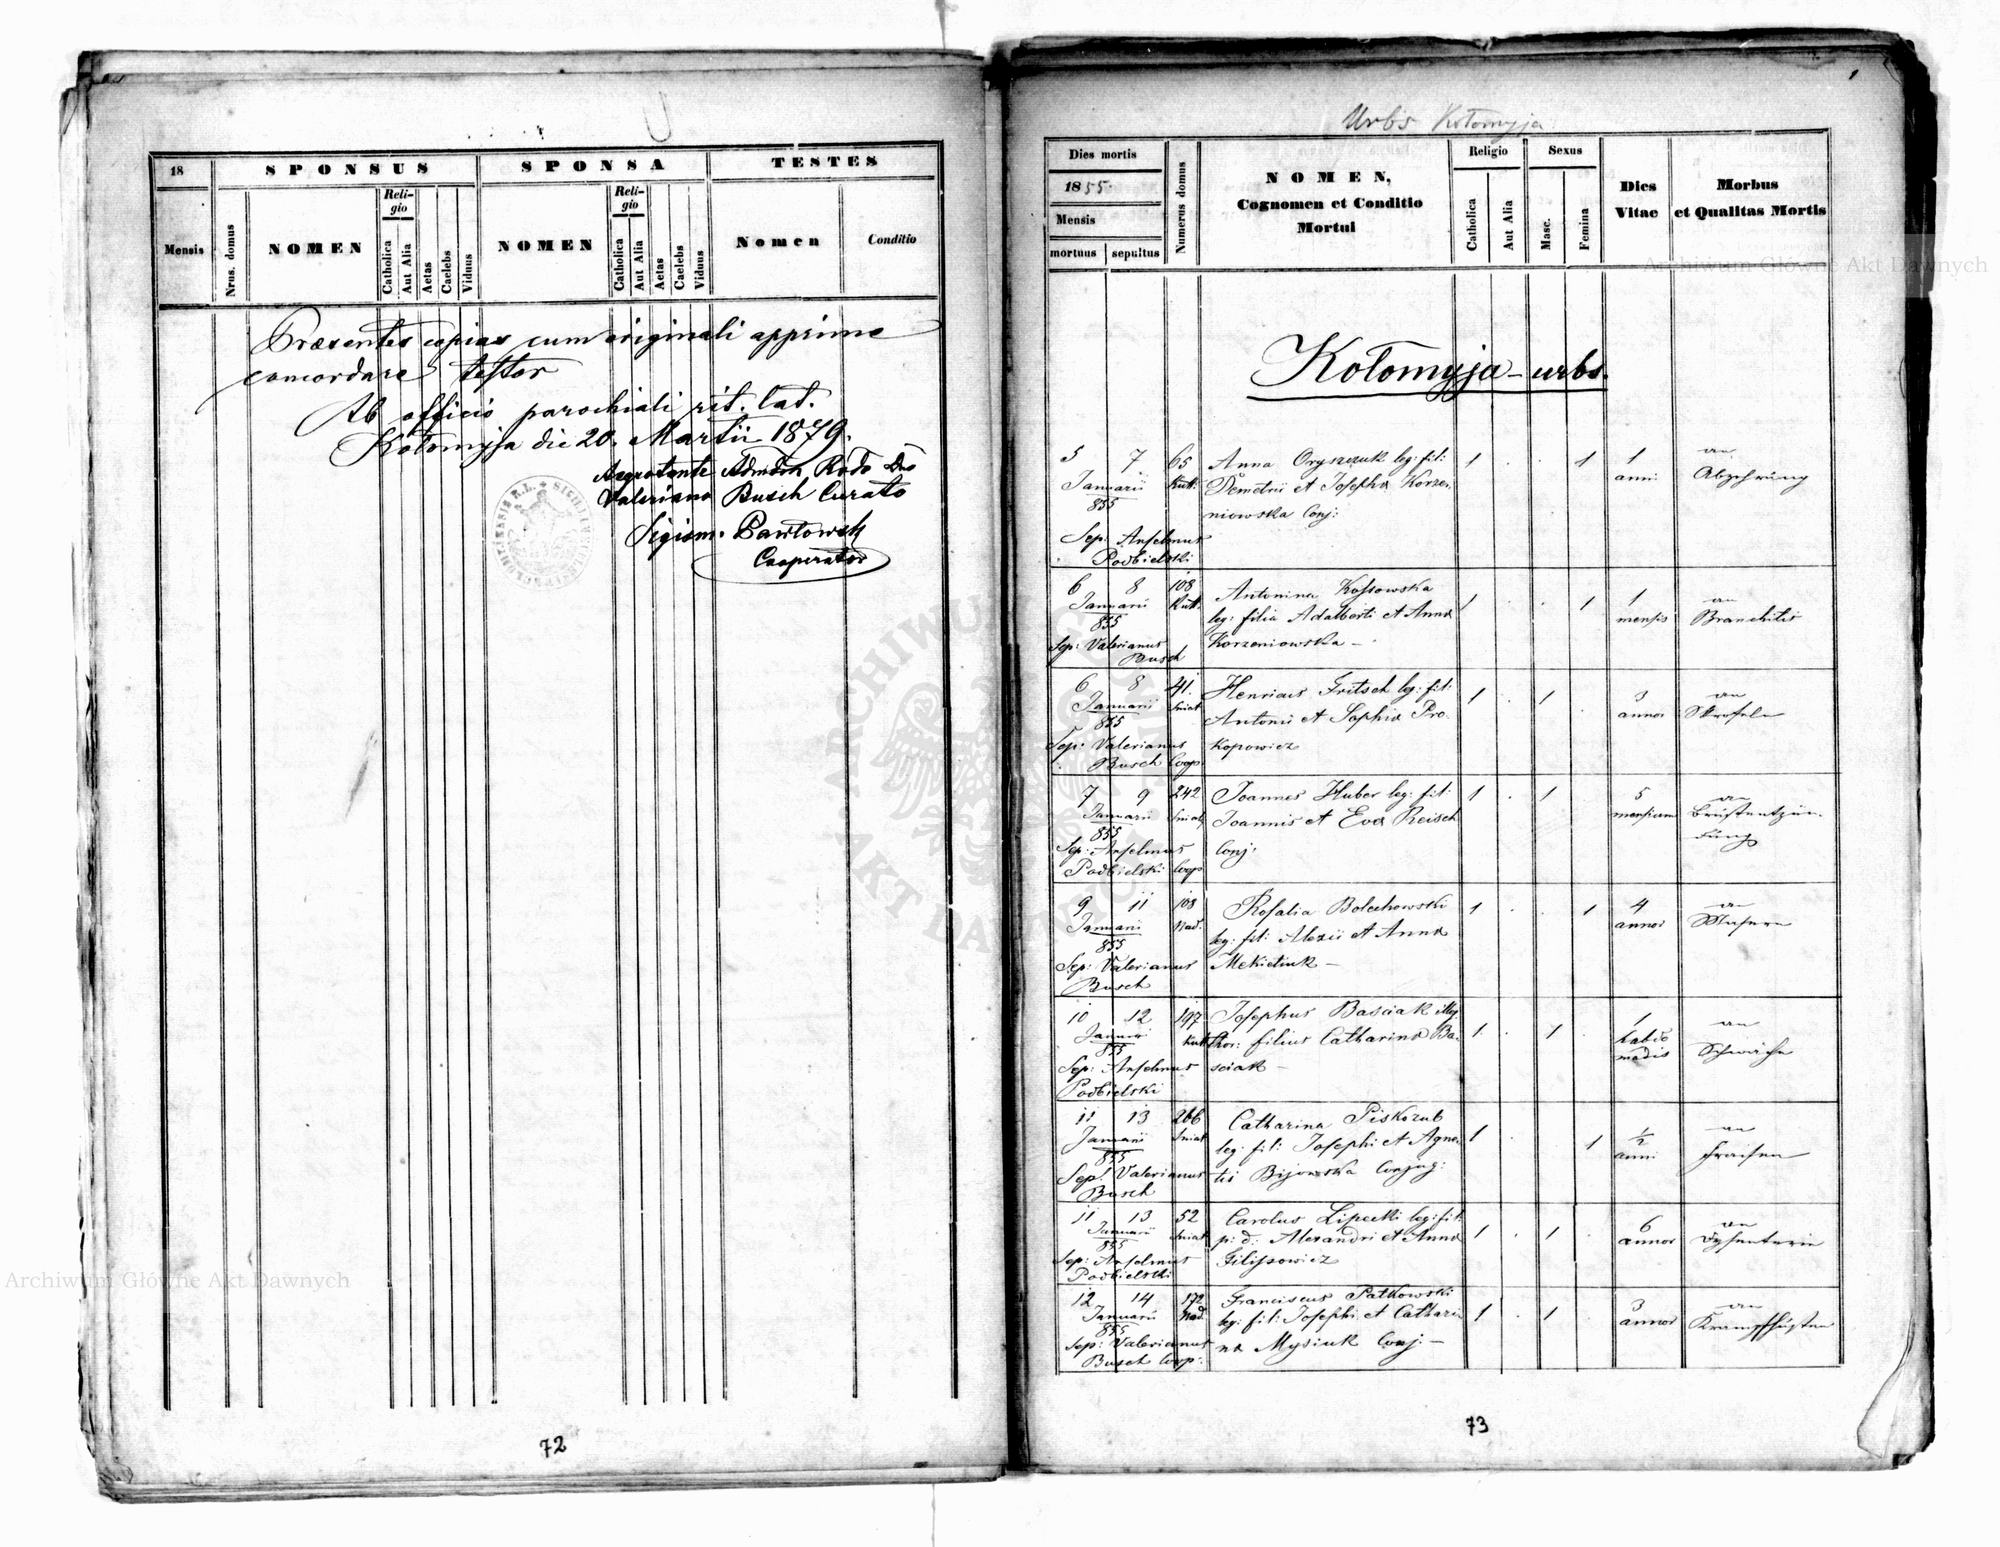 18
SPONSUS
SPONSA
TESTES
Mensis
Nrus. domus
NOMEN
Reli-
gio
Catholica
Aut Alia
Aetas
Caelebs
Viduus
NOMEN
Reli-
gio
Catholica
Aut Alia
Aetas
Caelebs
Viduus
Nomen
Conditio
Præsentes copias cum originali apprime
concordare testor
Ab officio parochiali rit. lat.
Kołomyja die 20. Martii 1879.
Aegrotante Admdm Rndo Dno
Valeriano Busch Curato
Sigism. Pawłowski
Cooperator
72
1
Urbs Kołomyja
Dies mortis
1855.
Mensis
mortuus
sepultus
Numerus domus
NOMEN,
Cognomen et Conditio
Mortui
Religio
Catholica
Aut Alia
Sexus
Masc.
Femina
Dies
Vitae
Morbus
et Qualitas Mortis
Kołomyja – urbs.
5 7 65 Anna Oryszczuk leg: fil: 1 . . 1 1 an
Januarii Kutt. Demetrii et Josepha Korze- anni Abzehrung
855 niowska Conj:
Sep: Anselmus
Podbielski
6 8 108 Antonina Kossowska 1 . . 1 1 an
Januarii Kutt. leg: filia Adalberti et Anna mensis Bronchitis
855 Korzeniowska –
Sep: Valerianus
Busch
6 8 41. Henricus Fritsch leg: fil: 1 . 1 . 3 an
Januarii Sniat Antonii et Sophia Pro- annor Skrofeln
855 kopowicz
Sep: Valerianus
Busch Coop
7 9 242 Joannes Huber leg: fil: 1 . 1 . 5 an
Januarii Sniat Joannis et Eva Reisch mensium Brustentzün-
855 Conj: dung
Sep: Anselmus
Podbielski Coop
9 11 108 Rosalia Bolechowski 1 . . 1 4 an
Januarii Nad. leg: fil: Alexii et Anna annor Masern
855 Mekietiuk –
Sep: Valerianus
Busch
10 12 197 Josephus Basciak illeg 1 . 1 . 1 an
Januarii Kutt thor: filius Catharina Ba- hebdo Schwäche
855 sciak – madis
Sep: Anselmus
Podbielski
11 13 266 Catharina Piskozub 1 . . 1 1/2 an
Januarii Sniat leg: fil: Josephi et Agne- anni Fraisen
855 tis Bijowska Conjug:
Sep: Valerianus
Busch
11 13 52 Carolus Lipecki leg: fil: 1 . 1 . 6 an
Januarii Sniat p: d: Alexandri et Anna annor Dysenterie
855
Sep: Anselmus
Podbielski
12 14 172 Franciscus Patkowski 1 . 1 . 3 an
Januarii Nad. leg: fil: Josephi et Cathari- annor Krampfhusten
855 na Mysiuk Conj: –
Sep: Valerianus
Busch Coop:
73
Archiwum Główne Akt Dawnych
Archiwum Główne Akt Dawnych